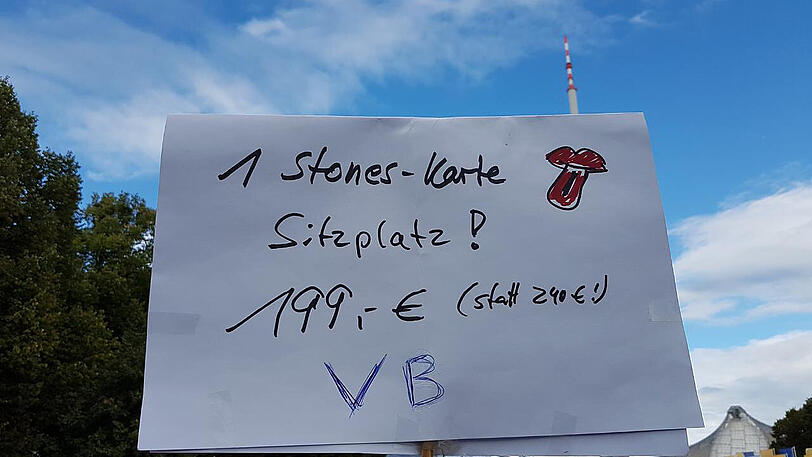 1 Stones-Karte
Sitzplatz!
199,- € (statt 240 € !)
VB